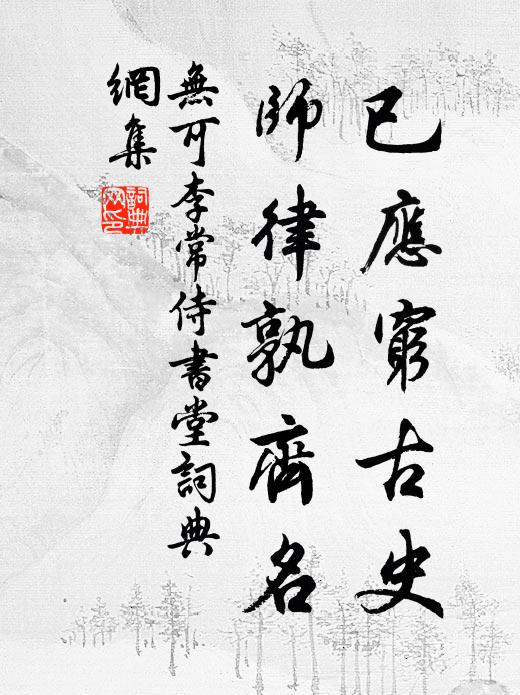 已應窮古史
師律孰齊名
無可李常侍書堂詞典
網集
詞典網印